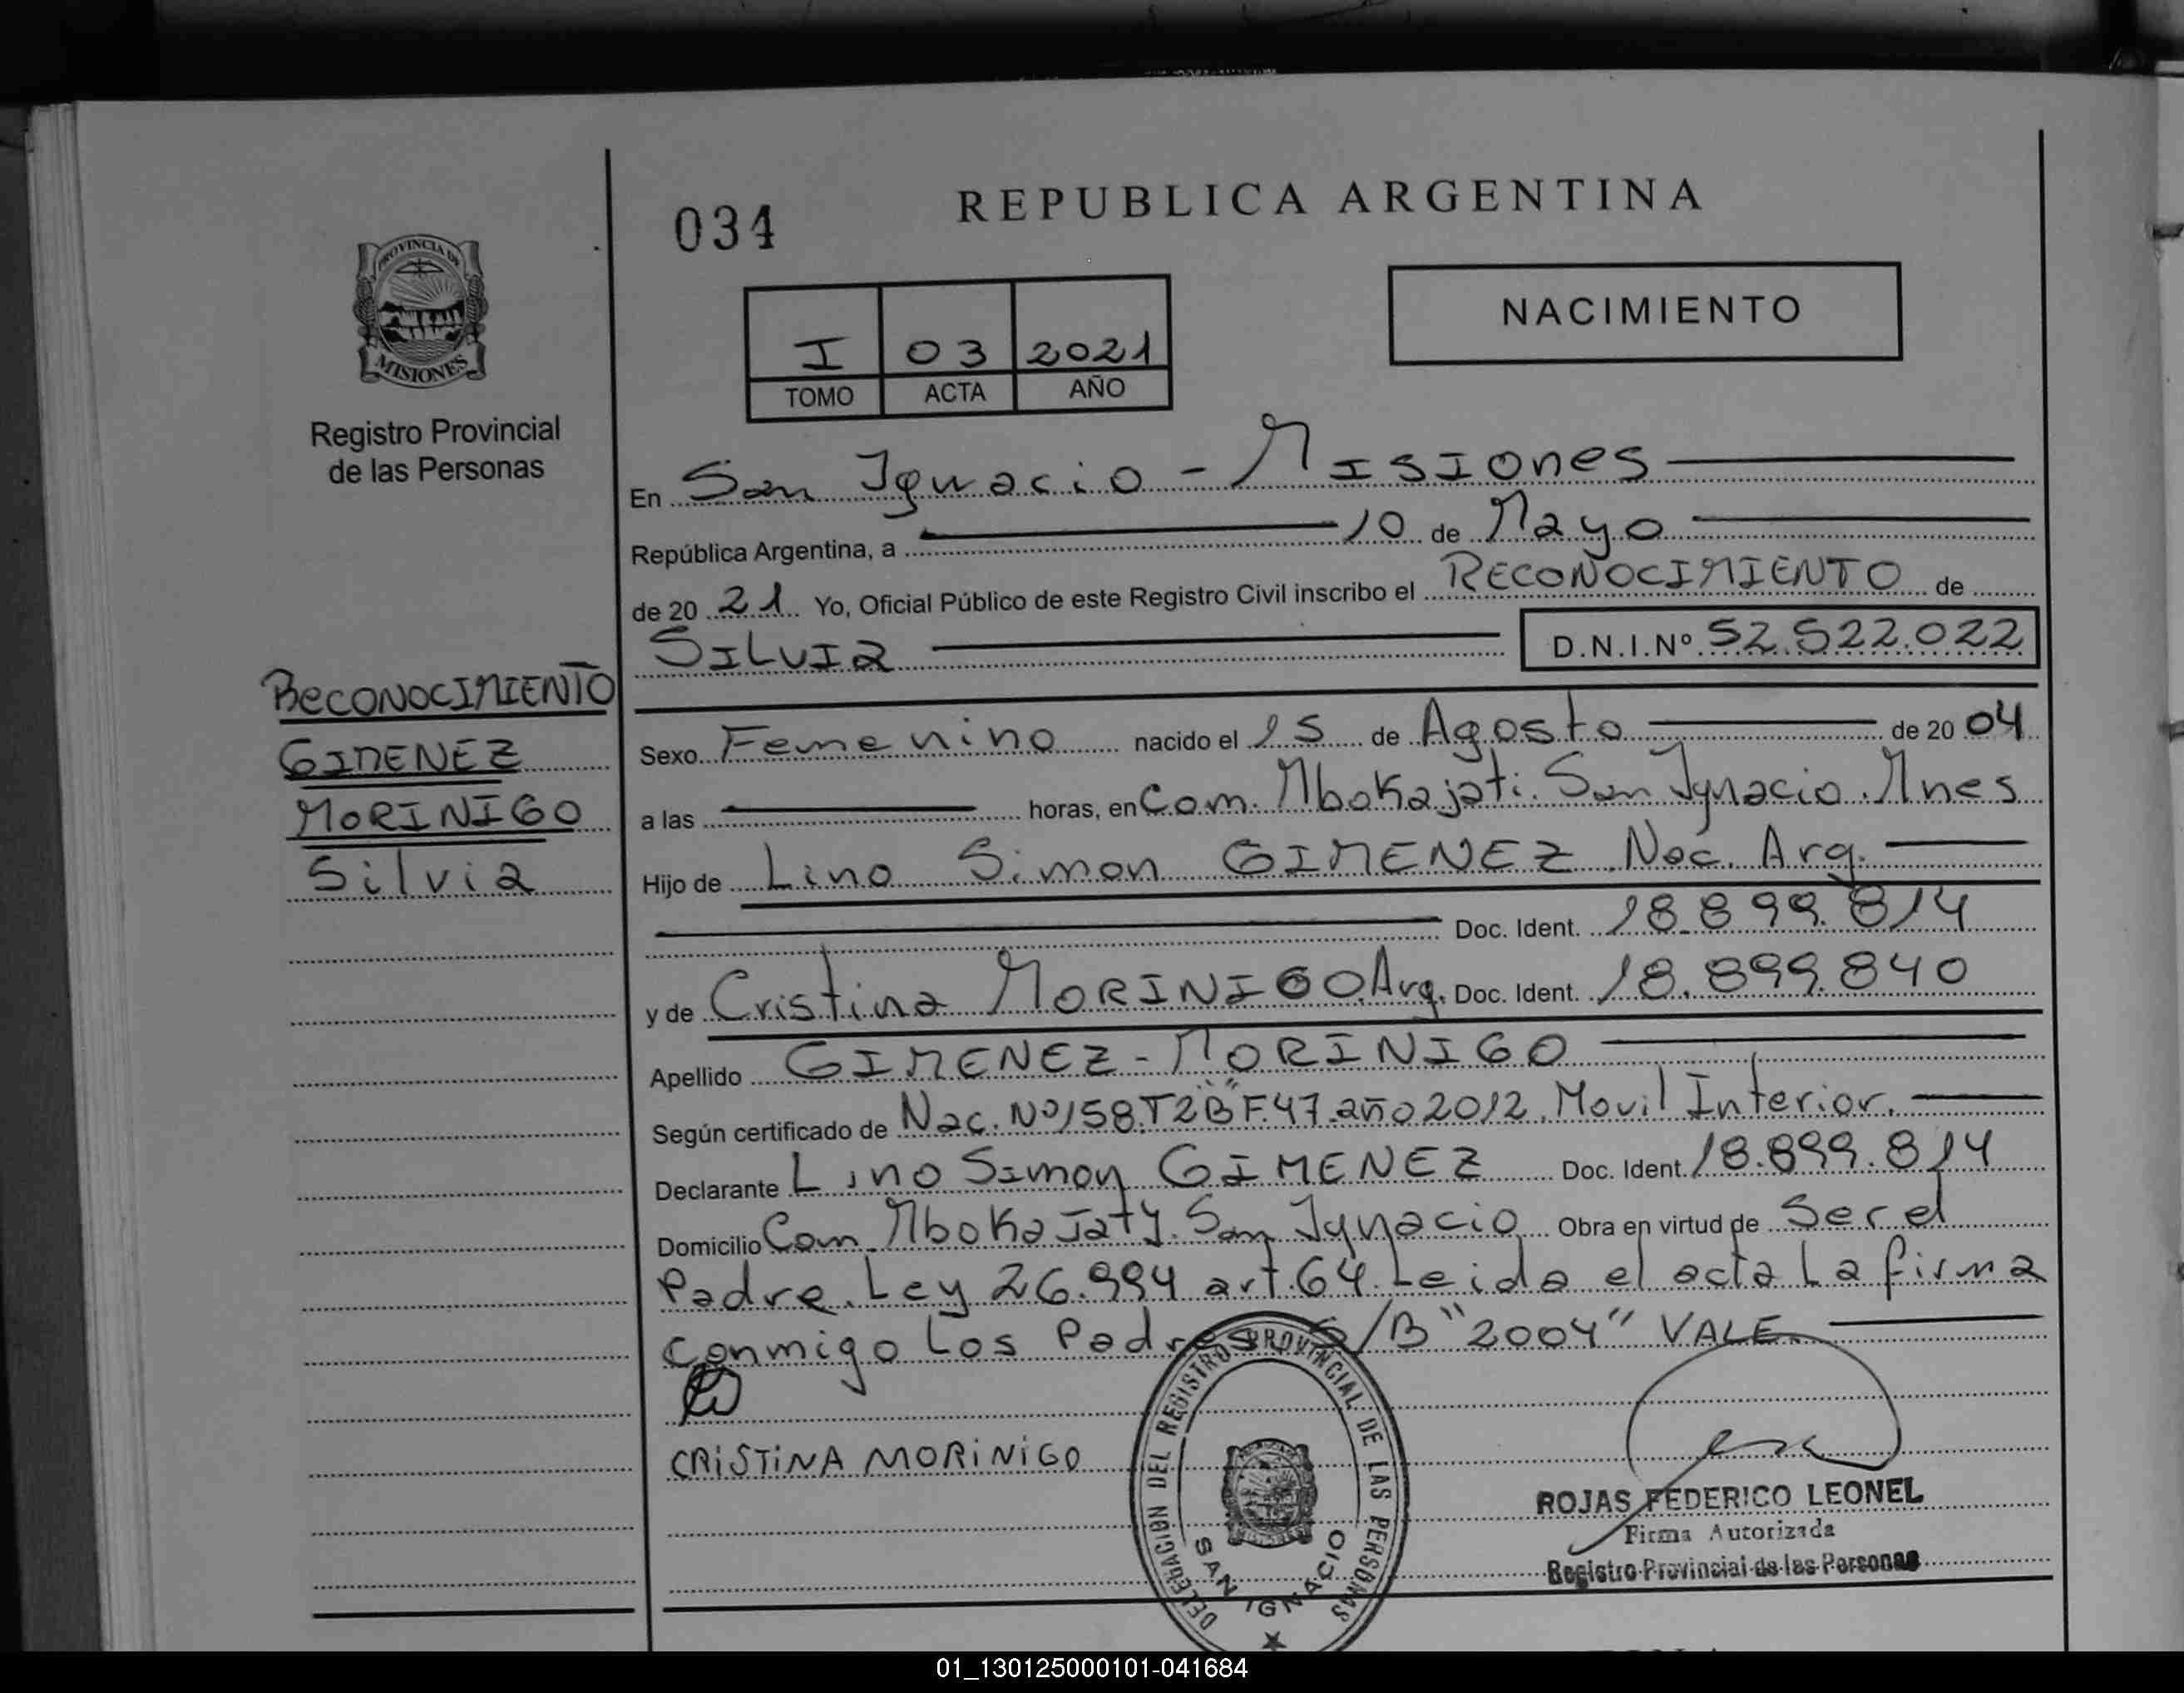 REPUBLICA ARGENTINA
034
NACIMIENTO
I 03 2021
TOMO ACTA AÑO
PROVINCIA DE
MISIONES
Registro Provincial
de las Personas
En San Ignacio - MISIONES
República Argentina, a 10 de Mayo
de 20 21 Yo, Oficial Público de este Registro Civil inscribo el RECONOCIMIENTO de
SILVIA D.N.I.Nº 52.522.022
RECONOCIMIENTO
GIMENEZ
MORINIGO
Silvia
Sexo Femenino nacido el 15 de Agosto de 20 04
a las horas, en Com. Mbokajati. San Ignacio. Mnes
Hijo de Lino Simon GIMENEZ. Nac. Arg.
Doc. Ident. 18.899.814
y de Cristina MORINIGO Arg. Doc. Ident. 18.899.840
Apellido GIMENEZ - MORINIGO
Según certificado de Nac. Nº 158.T2"B"F.47.año 2012. Movil Interior.
Declarante Lino Simon GIMENEZ Doc. Ident. 18.899.814
Domicilio Com. Mboka Jaty. San Ignacio Obra en virtud de Ser el
Padre. Ley 26.994 art.64. Leida el acta La firma
conmigo Los Padres S/B "2004" VALE.
CRISTINA MORINIGO
DELEGACIÓN DEL REGISTRO PROVINCIAL DE LAS PERSONAS
SAN IGNACIO
ROJAS FEDERICO LEONEL
Firma Autorizada
Registro Provincial de las Personas
01_130125000101-041684